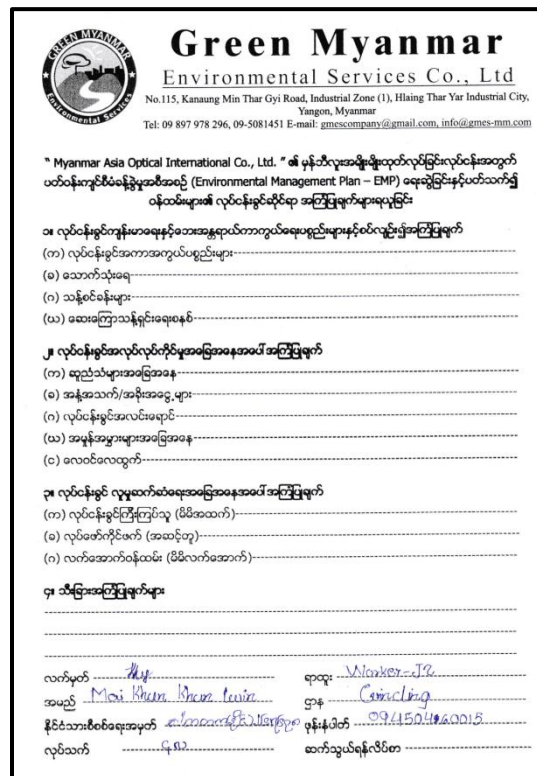 GREEN MYANMAR
Environmental Services
Green Myanmar
Environmental Services Co., Ltd
No.115, Kanaung Min Thar Gyi Road, Industrial Zone (1), Hlaing Thar Yar Industrial City,
Yangon, Myanmar
Tel: 09 897 978 296, 09-5081451 E-mail: gmescompany@gmail.com, info@gmes-mm.com
“ Myanmar Asia Optical International Co., Ltd. ” ၏ မှန်ဘီလူးအမျိုးမျိုးထုတ်လုပ်ခြင်းလုပ်ငန်းအတွက်
ပတ်ဝန်းကျင်စီမံခန့်ခွဲမှုအစီအစဉ် (Environmental Management Plan – EMP) ရေးဆွဲခြင်းနှင့်ပတ်သက်၍
ဝန်ထမ်းများ၏ လုပ်ငန်းခွင်ဆိုင်ရာ အကြံပြုချက်များရယူခြင်း
၁။ လုပ်ငန်းခွင်ကျန်းမာရေးနှင့်ဘေးအန္တရာယ်ကာကွယ်ရေးပစ္စည်းများနှင့်စပ်လျဉ်း၍အကြံပြုချက်
(က) လုပ်ငန်းခွင်အကာအကွယ်ပစ္စည်းများ
(ခ) သောက်သုံးရေ
(ဂ) သန့်စင်ခန်းများ
(ဃ) ဆေးကြောသန့်ရှင်းရေးစနစ်
၂။ လုပ်ငန်းခွင်အလုပ်လုပ်ကိုင်မှုအခြေအနေအပေါ် အကြံပြုချက်
(က) ဆူညံသံများအခြေအနေ
(ခ) အနံ့အသက်/အခိုးအငွေ့များ
(ဂ) လုပ်ငန်းခွင်အလင်းရောင်
(ဃ) အမှုန်အမွှားများအခြေအနေ
(င) လေဝင်လေထွက်
၃။ လုပ်ငန်းခွင် လူမှုဆက်ဆံရေးအခြေအနေအပေါ် အကြံပြုချက်
(က) လုပ်ငန်းခွင်ကြီးကြပ်သူ (မိမိအထက်)
(ခ) လုပ်ဖော်ကိုင်ဖက် (အဆင့်တူ)
(ဂ) လက်အောက်ဝန်ထမ်း (မိမိလက်အောက်)
၄။ သီးခြားအကြံပြုချက်များ
လက်မှတ် ရာထူး Worker-J2
အမည် Mai Khun Khun Lwin ဌာန
နိုင်ငံသားစီစစ်ရေးအမှတ် ဖုန်းနံပါတ်
လုပ်သက် ၄လ ဆက်သွယ်ရန်လိပ်စာ